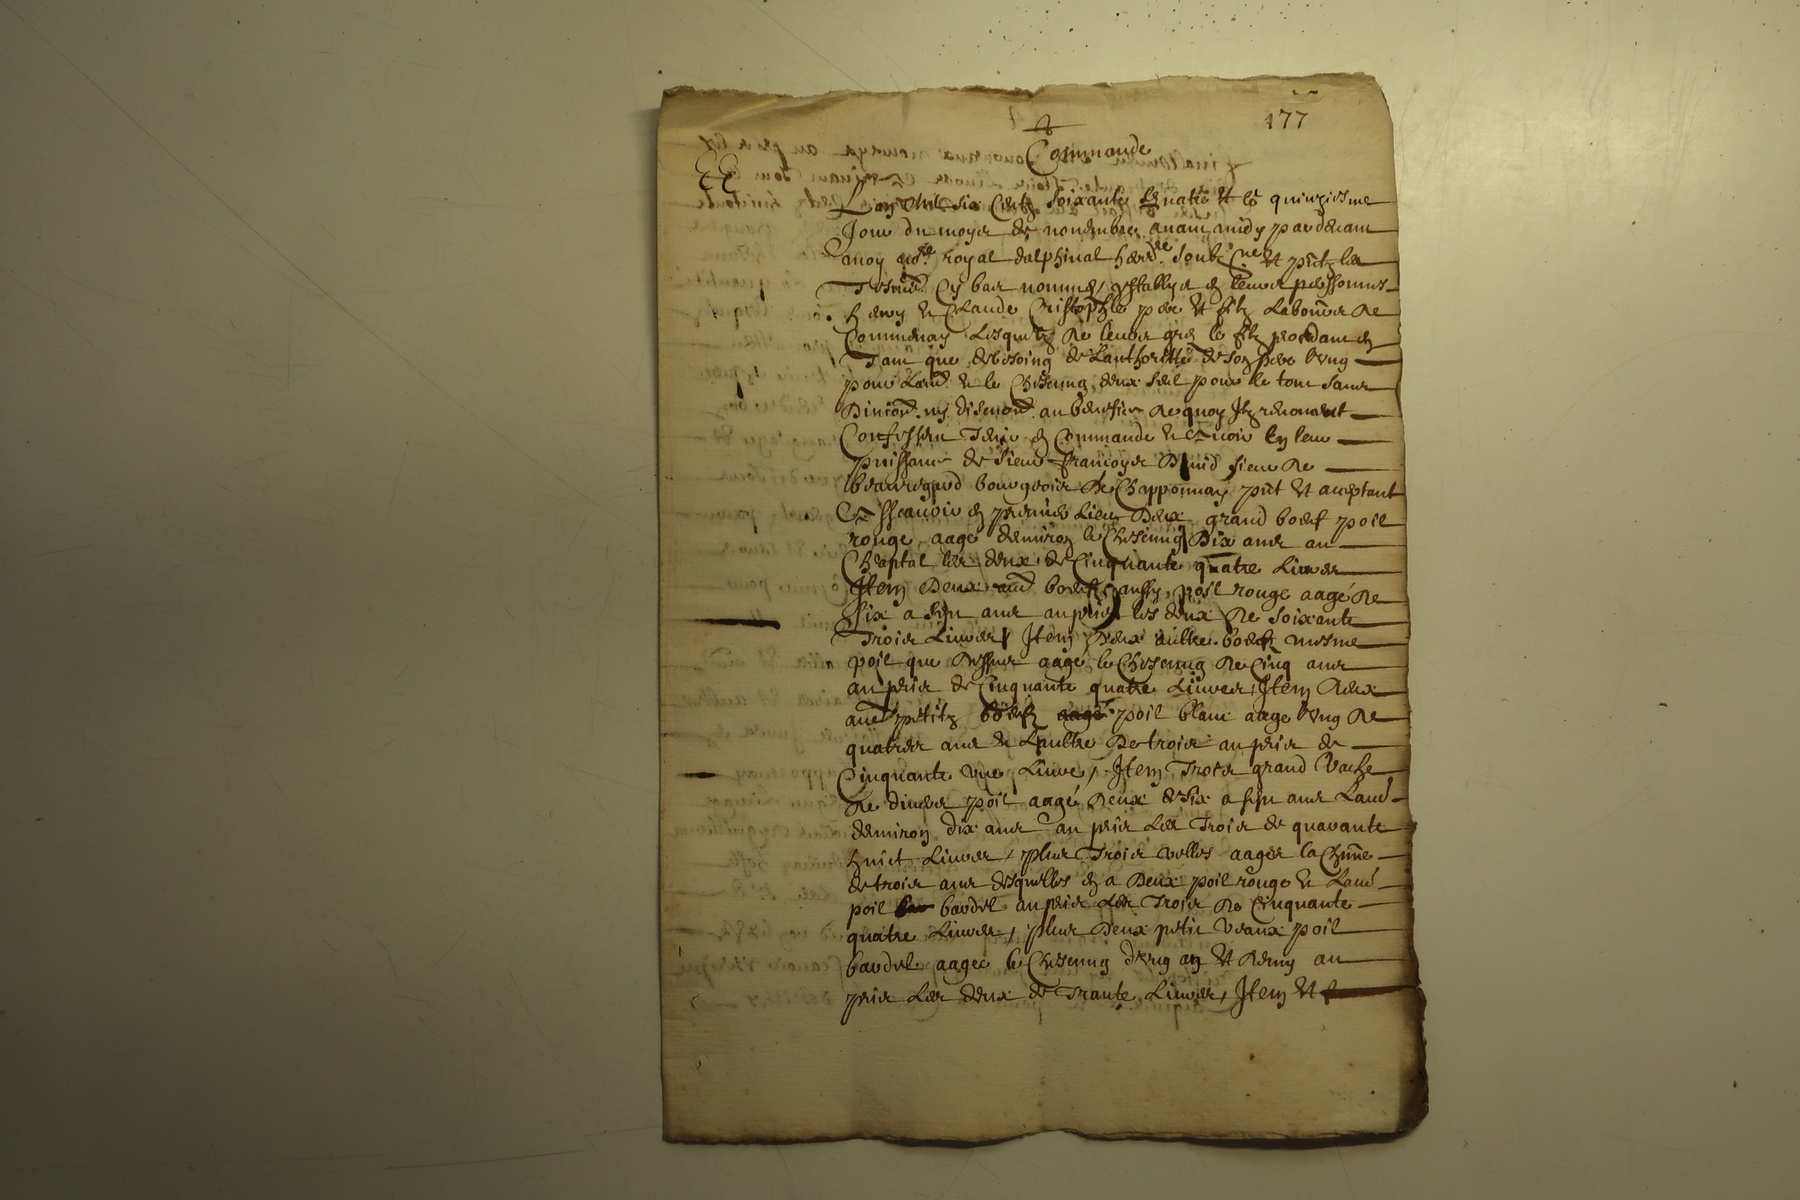 177
Commande
L'an Mil six Centz soixante quatre et le quinziesme
Jour du moys de novembre avant midy par devant
moy no.re royal dalphinal hered.re soubz.né et pntz les
Tesmd. Cy bas nommes, establys en leurs personnes
henry et Claude Cristophle pere et filz Laboure de
Communay Lesquelz de leurs grez le filz procedant en
Tant que de besoing de L'authoritté de son pere L'ung
pour Laud. et le Chescung deux seul pour le tout sans
Division. ny discution. au benefice de quoy Ilz renoncent
Confessent Tenir en Commande et avoir En leur
puissance de sieur françoys David sieur de
beauregard bourgeois de Chapponnay pnt et acceptant
Assavoir en premier Lieu Deux grand boeuf poil
rouge aage denviron le Chescung Dix ans au
Cheptal les deux de Cinquante quatre Livres
Item Deux aud boeufz aussy poil rouge aagé de
six a sept ans au prix les deux de soixante
Trois Livres, Item Deux aultre boeufz mesme
poil que dessus aage le Chescung de Cinq ans
au prix de Cinquante quatre Livres, Item deux
aud petitz boeufz aage poil blanc aage L'ung de
quatres ans et L'aultre De trois au prix de
Cinquante une Livre, Item Trois grand Vache
de divers poil aagé deux de six a sept ans Laud
denviron dix ans au prix Les Trois de quarante
huict Livres, plus Trois velles aages la Chune
de trois ans desquelles en a Deux poil rouge et Laud
poil bardel au prix Les Trois de Cinquante
quatre Livres, plus Deux petit veaux poil
bardel aages le Chescung d'ung an et demy au
prix Les deux de Trante Livres, Item et